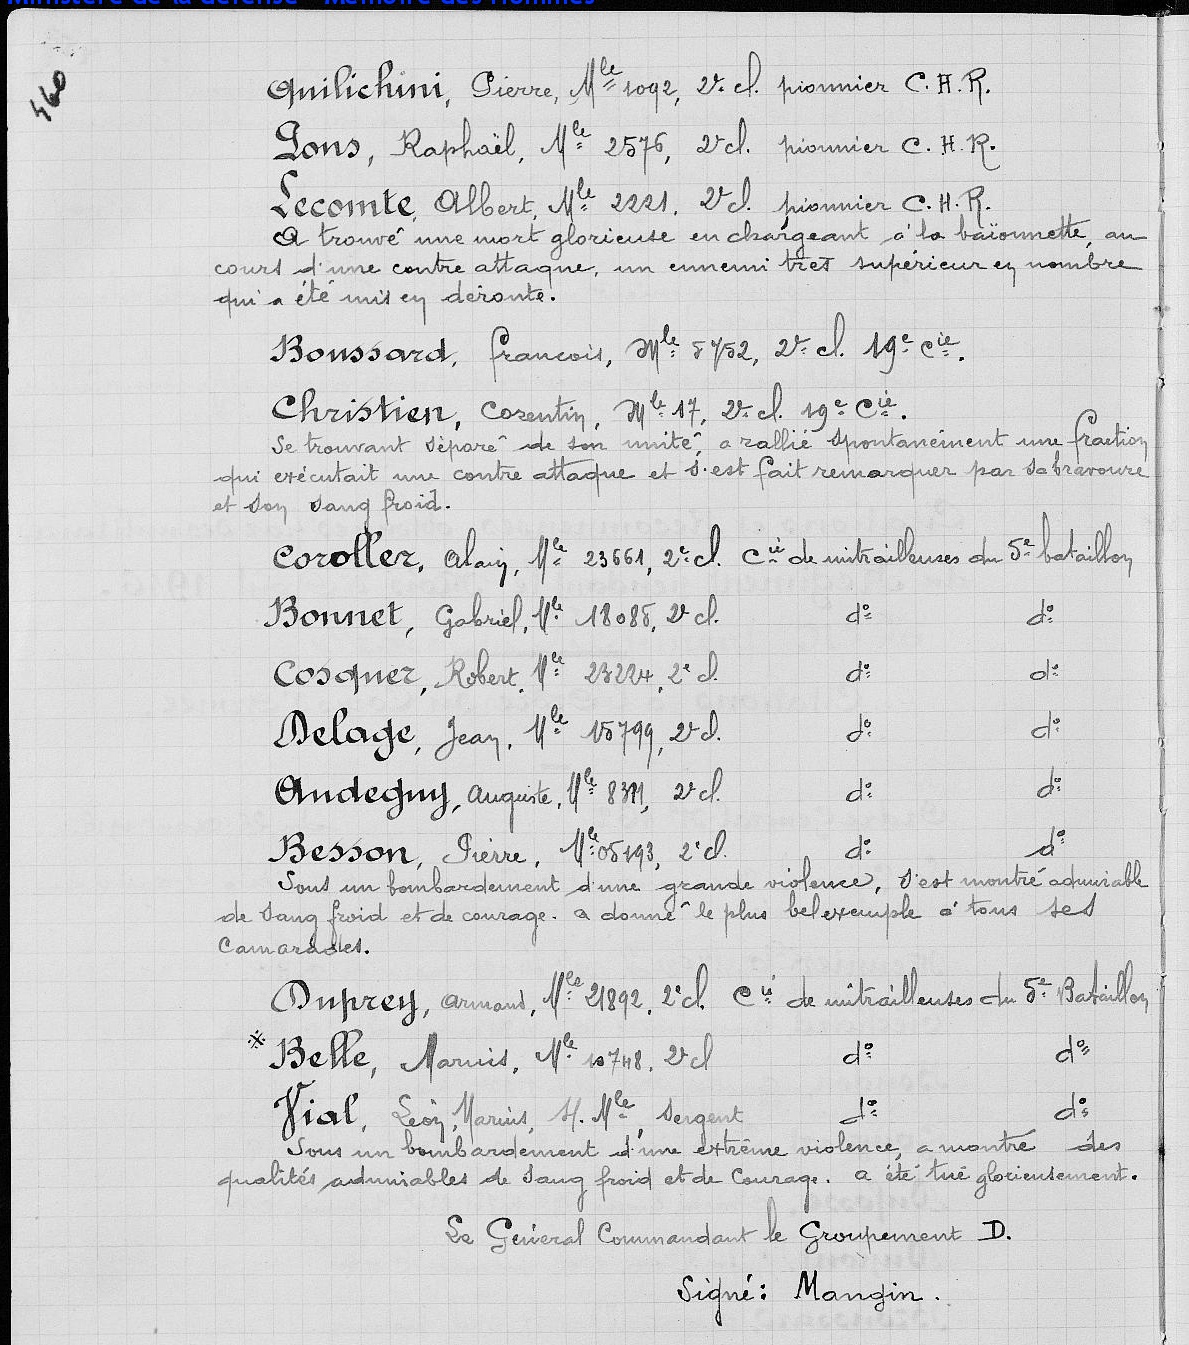 Ministère de la défense - Mémoire des Hommes
460
Quilichini, Pierre, Mle 1092, 2e cl. pionnier C.H.R.
Pons, Raphaël, Mle 2576, 2e cl. pionnier C.H.R.
Lecomte, Albert, Mle 2221, 2e cl. pionnier C.H.R.
A trouvé une mort glorieuse en chargeant à la baïonnette, au
cours d'une contre attaque, un ennemi très supérieur en nombre
qui a été mis en déroute.
Boussard, François, Mle 5752, 2e cl. 19e Cie.
Christien, Corentin, Mle 17, 2e cl. 19e Cie.
Se trouvant séparé de son unité, a rallié spontanément une fraction
qui exécutait une contre attaque et s'est fait remarquer par sa bravoure
et son sang froid.
Coroller, Alain, Mle 23661, 2e cl. Cie de mitrailleuses du 5e bataillon
Bonnet, Gabriel, Mle 18085, 2e cl. do do
Cosquer, Robert, Mle 23224, 2e cl. do do
Delage, Jean, Mle 15799, 2e cl. do do
Andeguy, Auguste, Mle 2e cl. do do
Besson, Pierre, Mle 05193, 2e cl. do do
Sous un bombardement d'une grande violence, s'est montré admirable
de sang froid et de courage. a donné le plus bel exemple à tous ses
Camarades.
Duprey, Armand, Mle 21892, 2e cl. Cie de mitrailleuses du 5e Bataillon
* Belle, Marius, Mle 10748, 2e cl do do
Vial, Léon, Marius, H. Mle, Sergent do do
Sous un bombardement d'une extrême violence, a montré des
qualités admirables de sang froid et de courage. a été tué glorieusement.
Le Général Commandant le Groupement D.
Signé: Mangin.